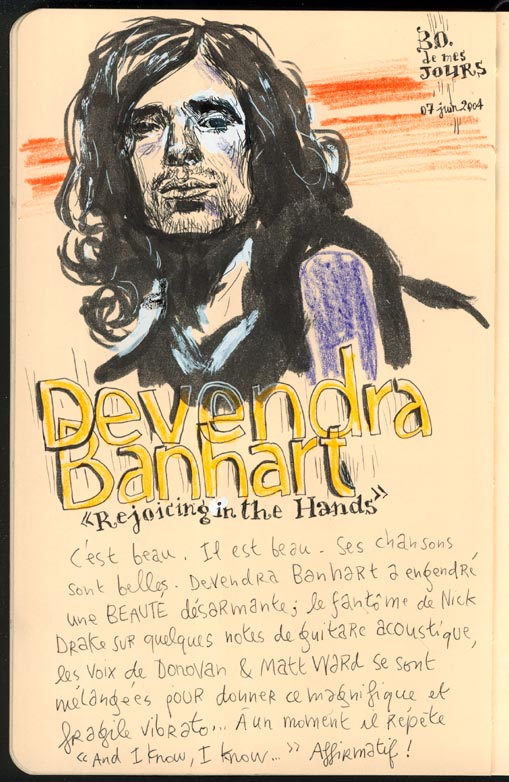 B.O.
de mes
JOURS
07 juin 2004
Devendra
Banhart
"Rejoicing in the Hands"
C'est beau. Il est beau. Ses chansons
sont belles. Devendra Banhart a engendré
une BEAUTÉ désarmante; le fantôme de Nick
Drake sur quelques notes de guitare acoustique,
les voix de Donovan & Matt Ward se sont
mélangées pour donner ce magnifique et
fragile vibrato... À un moment il répète
"And I know, I know..." Affirmatif !